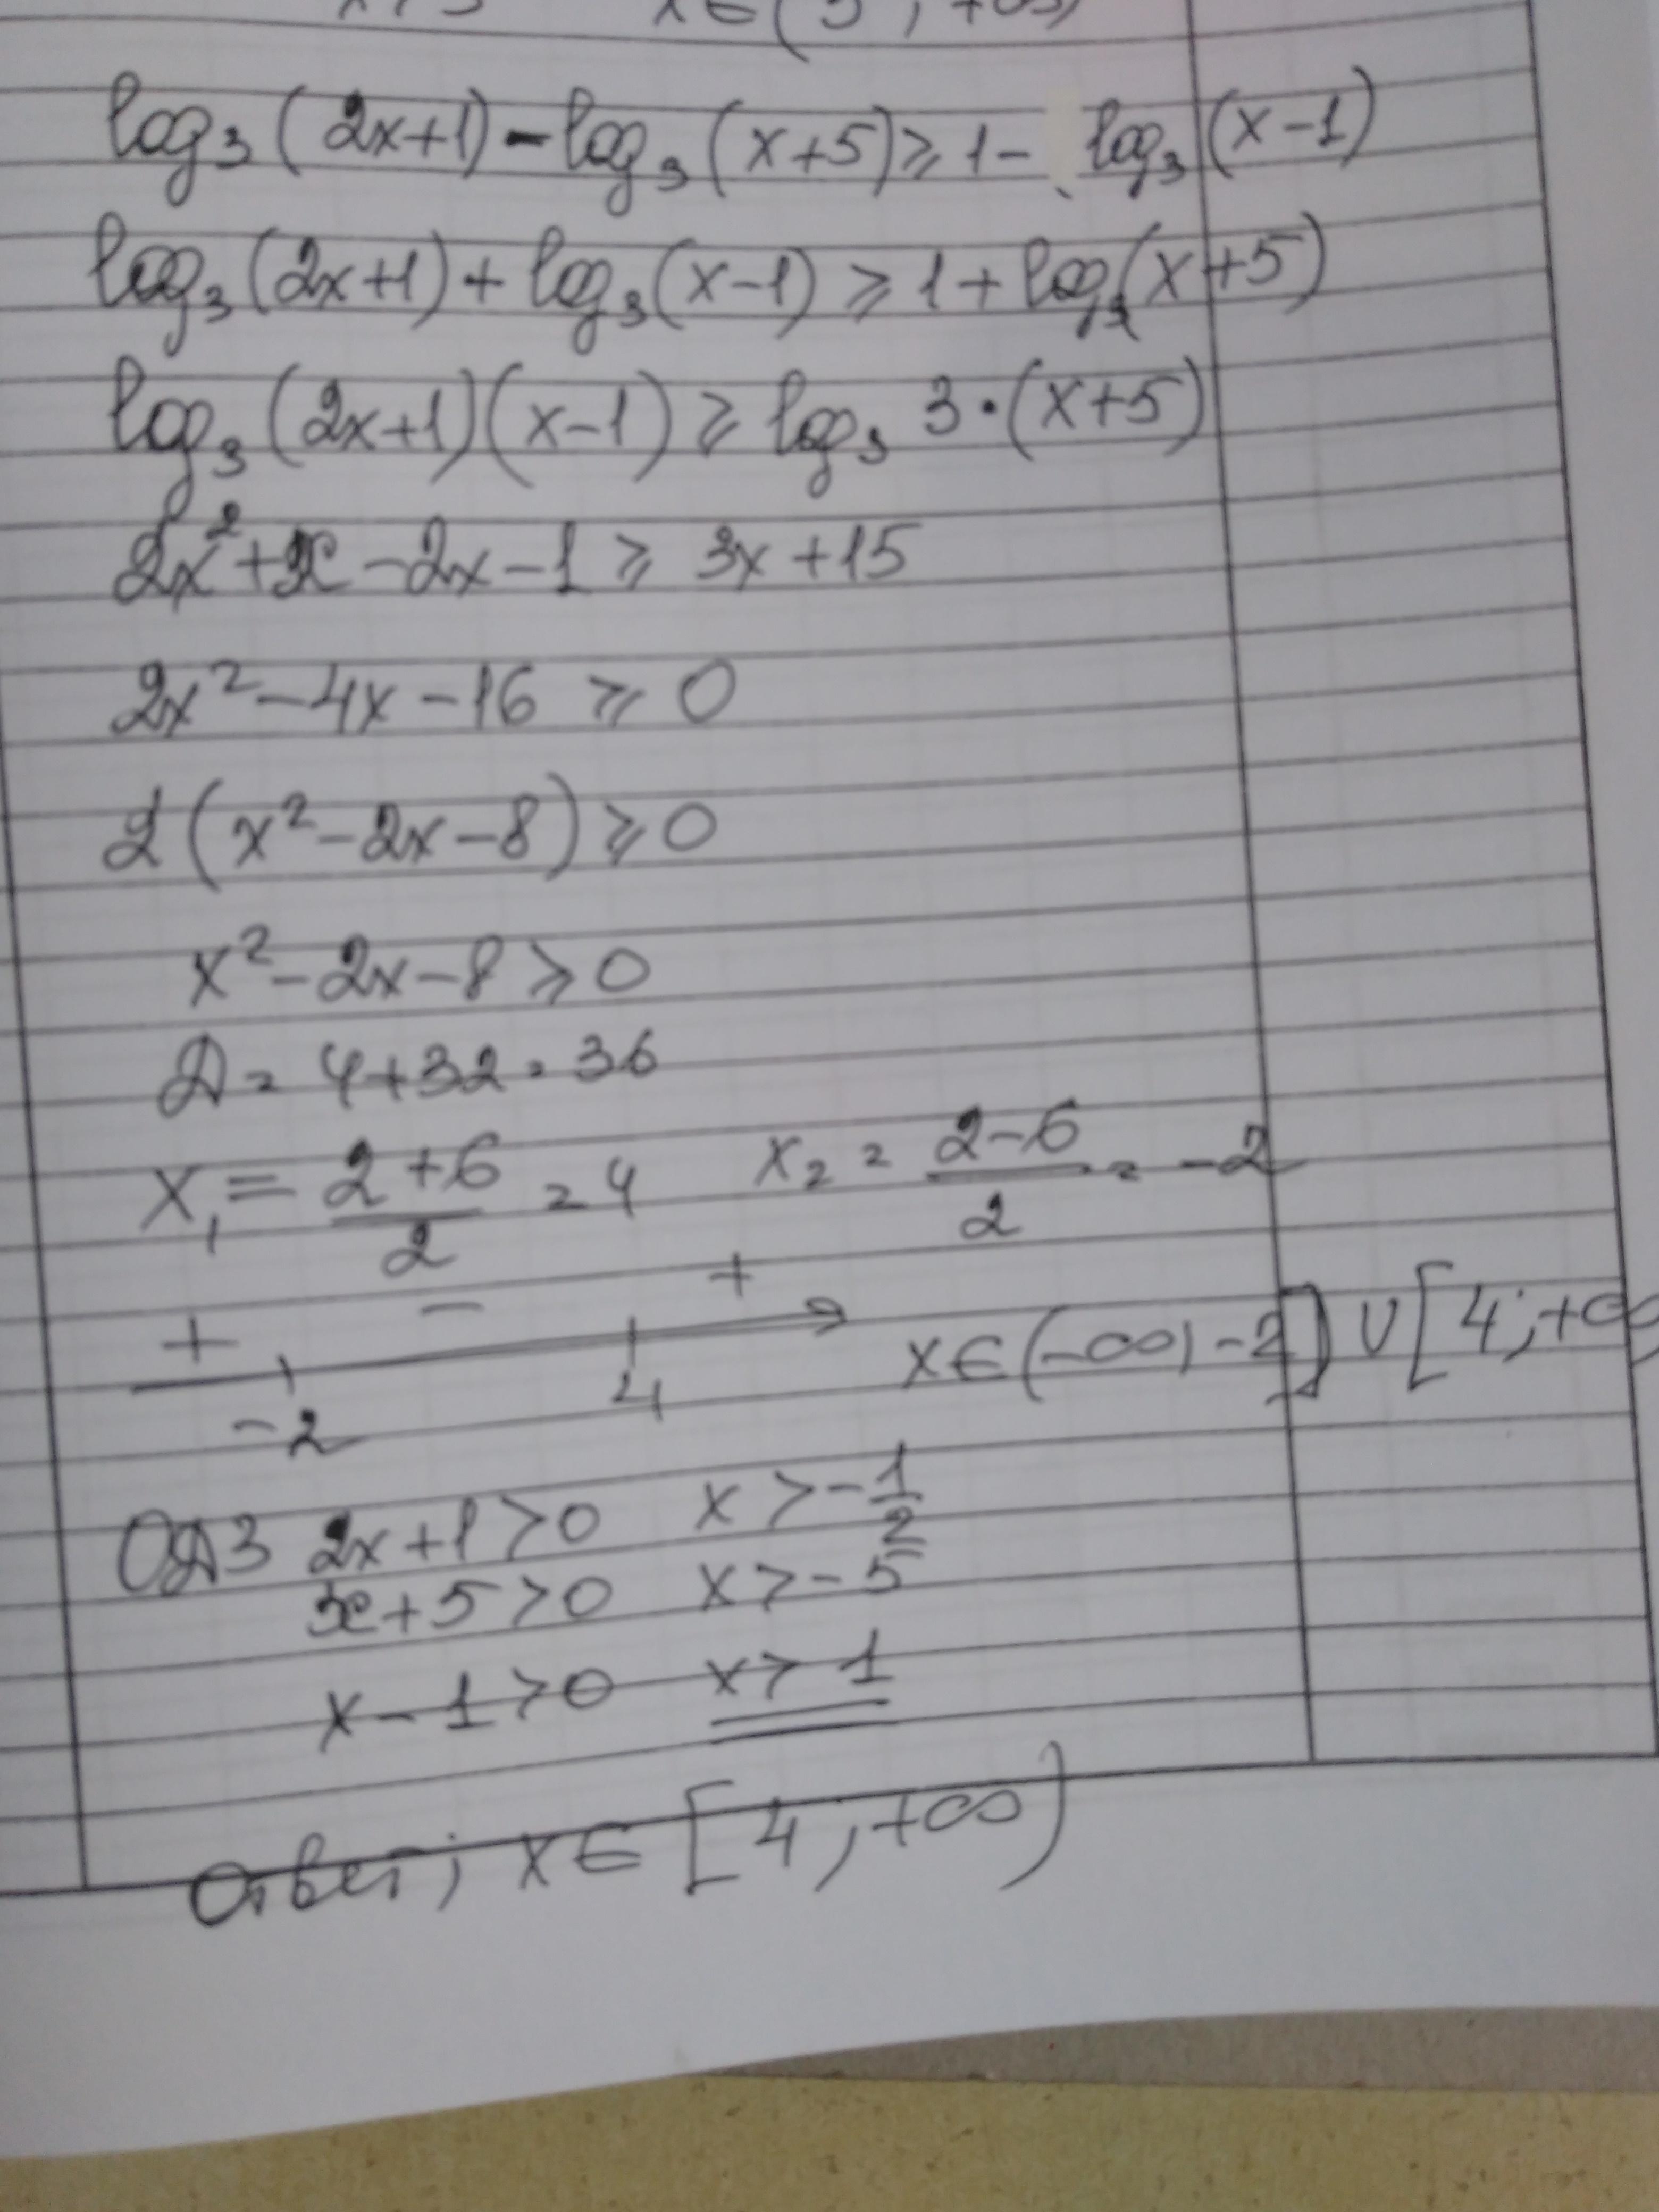 x∈(5; +∞)
log₃(2x+1)-log₃(x+5)⩾1- log₃(x-1)
log₃(2x+1)+log₃(x-1)⩾1+log₃(x+5)
log₃(2x+1)(x-1)⩾log₃ 3·(x+5)
2x²+x-2x-1⩾3x+15
2x²-4x-16⩾0
2(x²-2x-8)⩾0
x²-2x-8⩾0
D=4+32=36
x₁=(2+6)/2=4 x₂=(2-6)/2=-2
+ - +
-2 4 x∈(-∞; -2]∪[4; +∞)
ОДЗ 2x+1>0 x>-1/2
x+5>0 x>-5
x-1>0 x>1
Ответ; x∈[4; +∞)